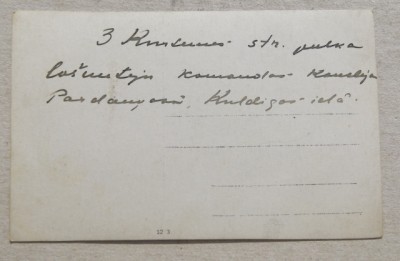 3 Kurzemes str. pulka
ložmetēju komandas kanceleja
Pārdaugavā, Kuldīgas ielā.